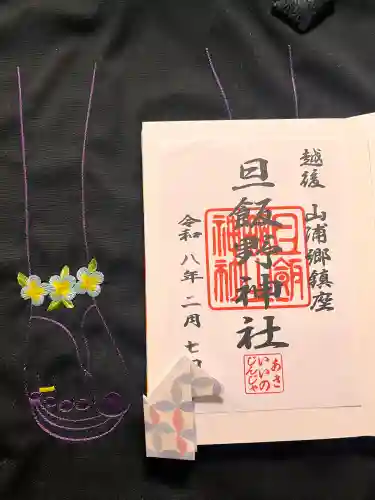 越後 山浦郷鎮座
旦飯野神社
令和八年二月七日
あさ
いいの
じんじゃ